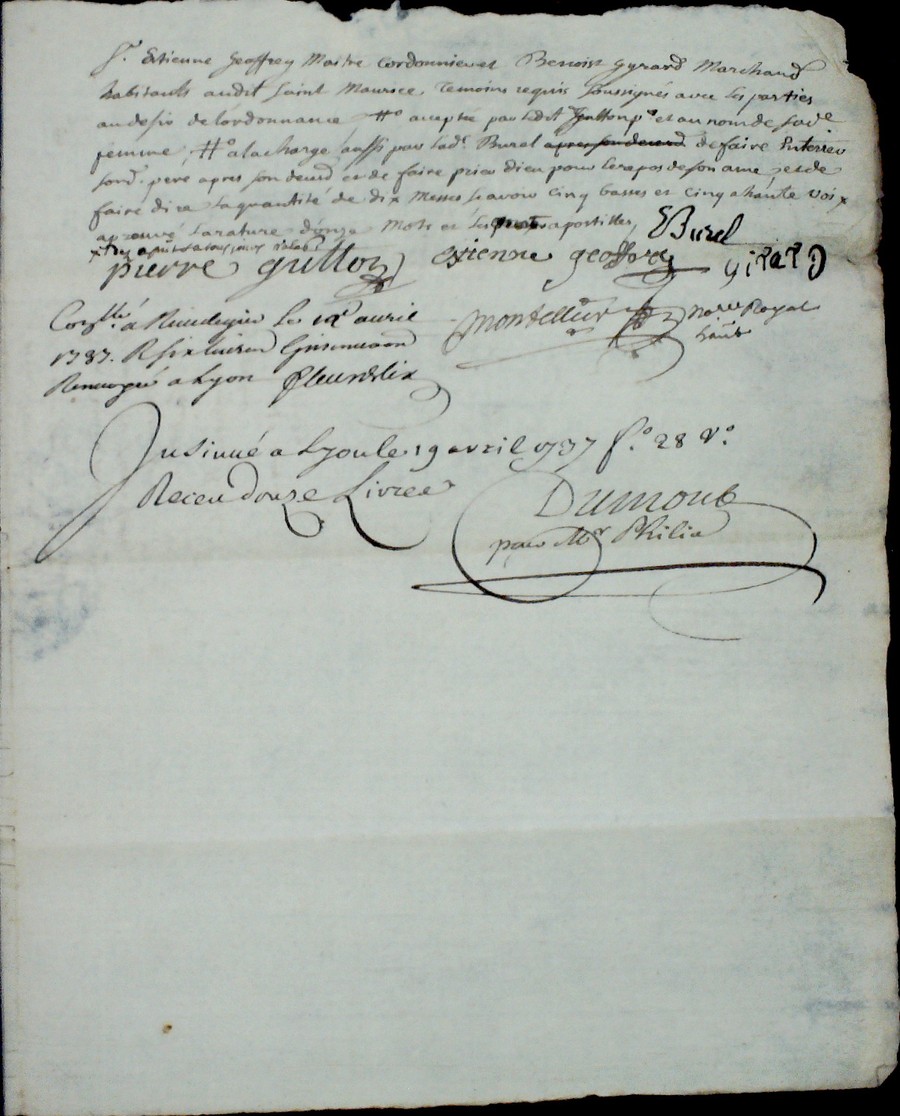 Sr. Estienne Geoffrey Maitre Cordonnier et Benoist Gyrard Marchand
habitants audit Saint Maurice, Temoins requis soussignes avec les parties
au desir de lordonnance #o. acceptée par ledit Guitton pr. et au nom de sade
femme, #o. a la charge aussi par lad. Burel apres son deced de faire Enterrer
sond. pere apres son deced et de faire prier dieu pour le repos de son ame, et de
faire dire la quantité de dix Messes scavoir Cinq basses et Cinq a haute Voix x
aprouvé la rature d'onze Mots et les apostilles, EBurel
pierre guitton estienne geoffrey girard
Conllé. à le avril
1737. R six livres
Renvoyé a Lyon fleurdelix
Montellier No.re Royal
Insinué a Lyon le 19 avril 1737 fo. 28 Vo.
Receu douze Livres
Dumont
pour Mr Philia